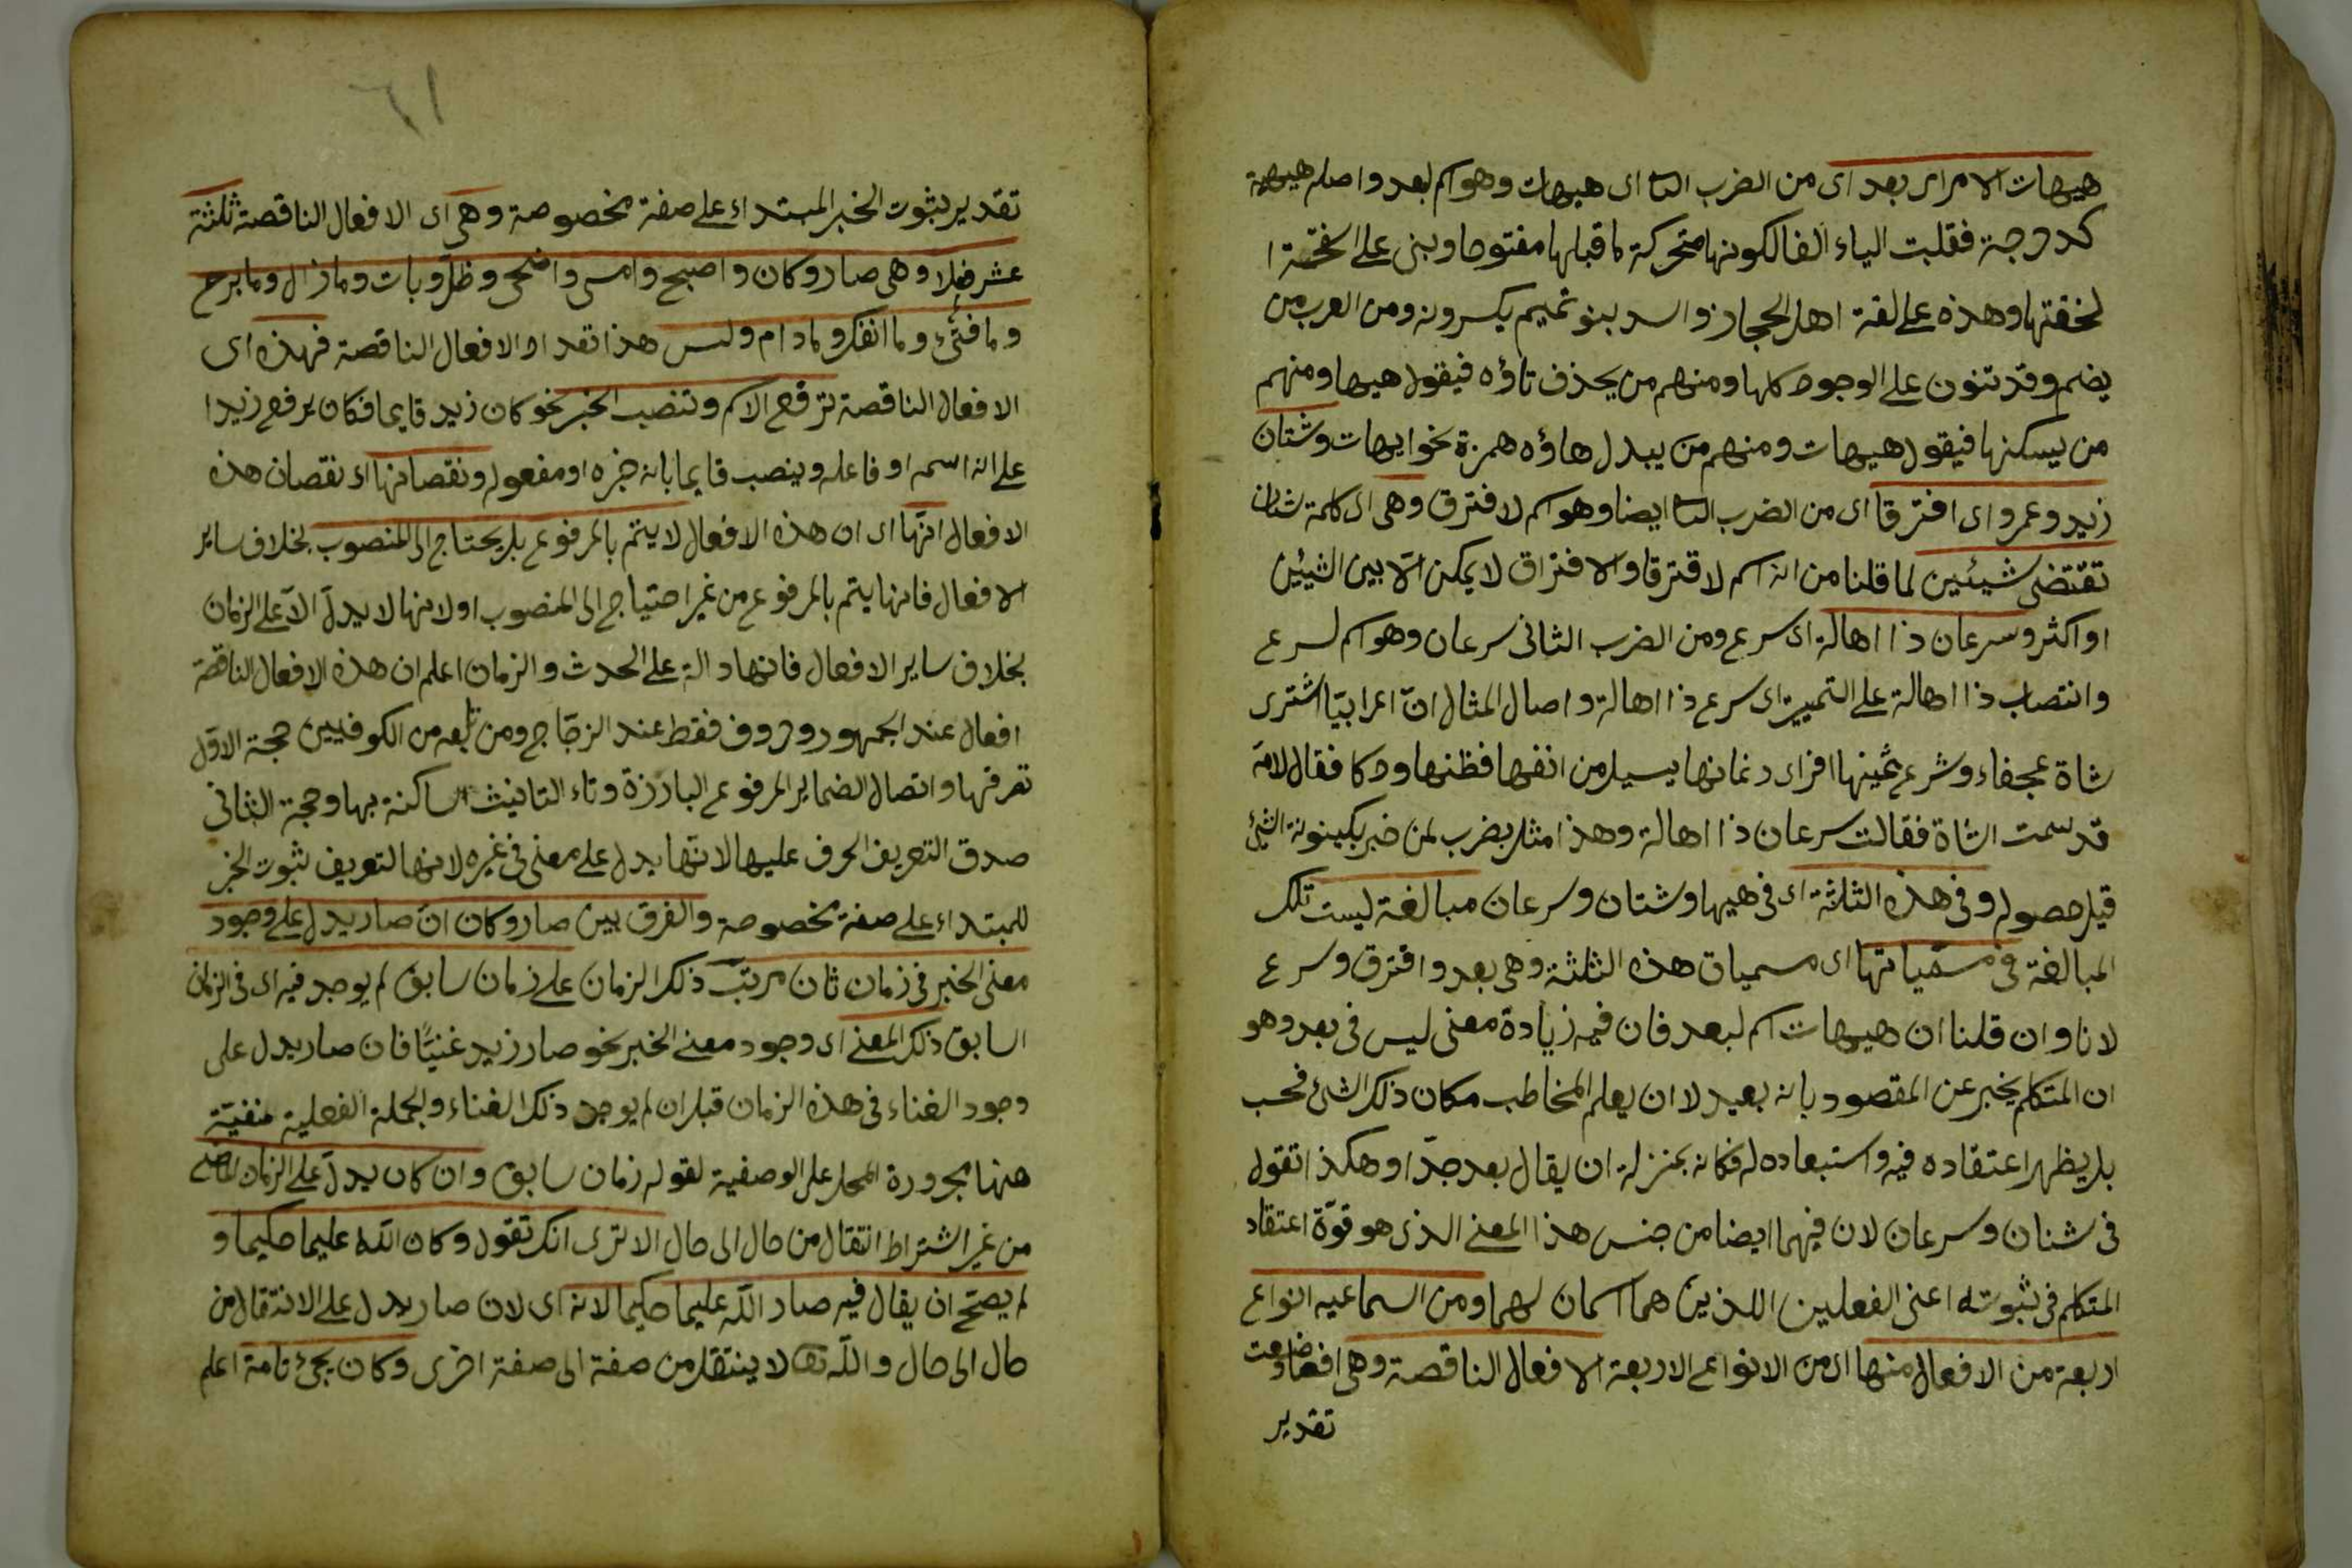 هيهات الامر اى بعد اى من الضرب الثانى اى هيهات وهو اسم لبعد واصله هيهية
كدحرجة فقلبت الياء الفا لكونها متحركة ما قبلها مفتوحا وبنى على الفتحة
لخفتها وهذه على لغة اهل الحجاز واسد بنو تميم يكسرونه ومن العرب من
يضم وقد تنون على الوجوه كلها ومنهم من يحذف تاؤه فيقول هيها ومنهم
من يسكنها فيقول هيهات ومنهم من يبدل هاؤه همزة نحو ايهات وشتان
زيد وعمرو اى افترقا اى من الضرب الثانى ايضا وهو اسم لافترق وهى اى كلمة شتان
تقتضى شيئين لما قلنا من انه اسم لافترقا والافتراق لا يمكن الا بين الشيئين
او اكثر وسرعان ذا اهالة اى سرع ومن الضرب الثانى سرعان وهو اسم لسرع
وانتصاب ذا اهالة على التمييز اى سرع ذا اهالة واصال المثال ان اعرابيا اشترى
شاة عجفاء وشرع ثمينها افراى رغمانها يسيل من انفها فظنها ودكا فقال لامه
قد سمت الشاة فقالت سرعان ذا اهالة وهذا مثل يضرب لمن خبر بكينونة الشئ
قبل حصوله وفى هذه الثلاثة اى فى هيها وشتان وسرعان مبالغة ليست تلك
المبالغة فى مسمّياتها اى مسميات هذه الثلثة وهى بعد وافترق وسرع
لانا وان قلنا ان هيهات اسم لبعد فان فيه زيادة معنى ليس فى بعد وهو
ان المتكلم يخبر عن المقصود بانه بعيد لا ان يعلم المخاطب مكان ذلك الشئ فحسب
بل يظهر اعتقاده فيه واستبعاده له فكانه بمنزلة ان يقال بعد جدّا وهكذا تقول
فى شتان وسرعان لان فيهما ايضا من جنس هذا المعنى الذى هو قوّة اعتقاد
المتكلم فى ثبوته اعنى الفعلين اللذين هما اسمان لهما ومن السماعيه انواع
اربعة من الافعال منها اى من الانواع الاربعة الافعال الناقصة وهى افعال وضعت
تقدير
٦١
تقدير ثبوت الخبر المبتداء على صفة مخصوصة وهى اى الافعال الناقصة ثلثة
عشر فعلا وهى صار وكان واصبح وامسى واضحى وظلّ وبات وما زال وما برح
وما فتئ وما انفك وما دام وليس هذا تعداد الافعال الناقصة فهذه اى
الافعال الناقصة ترفع الاسم وتنصب الخبر نحو كان زيد قايما فكان يرفع زيدا
على انه اسمه او فاعله وينصب قايما بانه خبره او مفعوله ونقصانها اى نقصان هذه
الافعال انّها اى ان هذه الافعال لا يتم بالمرفوع بل يحتاج الى المنصوب بخلاف ساير
الافعال فانها يتم بالمرفوع من غير احتياج الى المنصوب او لانها لا يدلّ الا على الزمان
بخلاف ساير الافعال فانها دالة على الحدث والزمان اعلم ان هذه الافعال الناقصة
افعال عند الجمهور وحروف فقط عند الزجّاج ومن تابعه من الكوفيين حجة الاوّل
تعرفها واتصال الضماير المرفوع البارزة وتاء التانيث الساكنة بها وحجة الثانى
صدق التعريف الحرف عليها لانّها يدل على معنى فى غيره لانها لتعريف ثبوت الخبر
للمبتداء على صفة مخصوصة والفرق بين صار وكان انّ صار يدل على وجود
معنى الخبر فى زمان ثان مرتب ذلك الزمان على زمان سابق لم يوجد فيه اى فى الزمان
السابق ذلك المعنى اى وجود معنى الخبر نحو صار زيد غنيّا فان صار يدل على
وجود الغناء فى هذه الزمان قبل ان لم يوجد ذلك الغناء والجملة الفعلية منفيّة
ههنا مجرورة المحل على الوصفية لقوله زمان سابق وان كان يدلّ على الزمان الماضى
من غير اشتراط انتقال من حال الى حال الا ترى انك تقول وكان الله عليما حكيما و
لم يصحّ ان يقال فيه صار الله عليما حكيما لانه اى لان صار يدل على الانتقال من
حال الى حال والله تعا لا ينتقل من صفة الى صفة اخرى وكان يجئ تامة اعلم